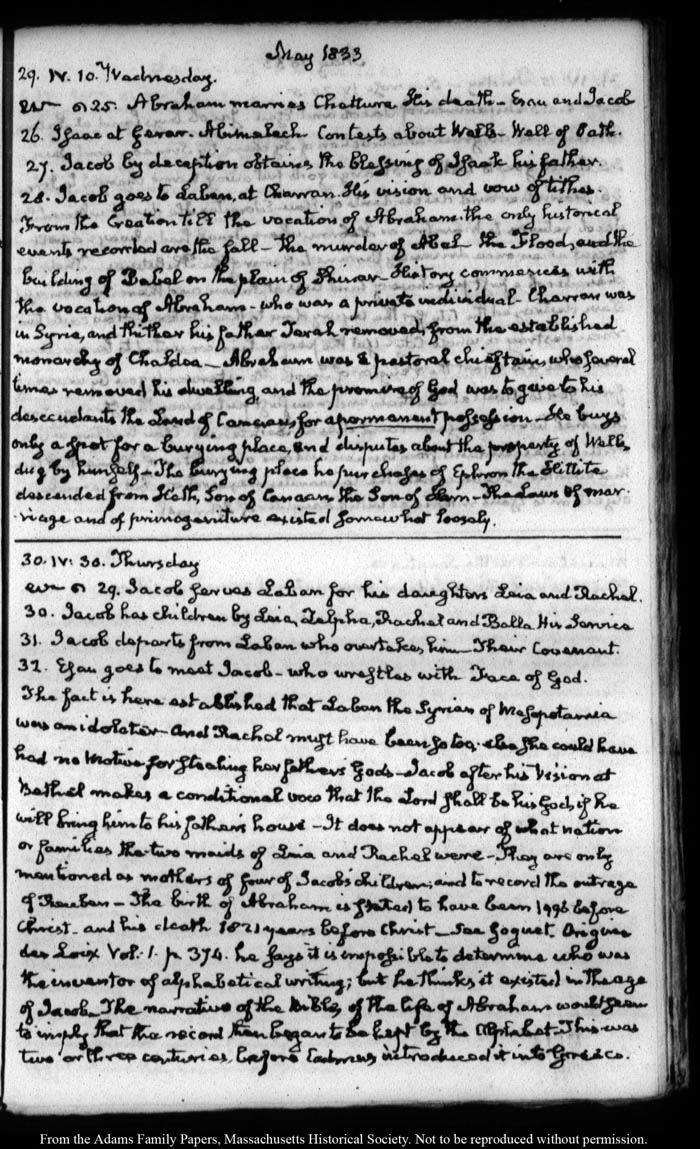 May 1833
29. IV. 10. Wednesday.
25. Abraham marries Chettura His death – Esau and Jacob
26. Isaac at Gerar. Abimelech Contests about Wells – Well of Oath.
27. Jacob by deception obtains the blessing of Isaak his father.
28. Jacob goes to Laban, at Charran. His vision and vow of tithes.
From the Creation till the vocation of Abraham the only historical
events recorded are the fall – the murder of Abel – the Flood, and the
building of Babel on the plain of Shinar – History commences with
the vocation of Abraham – who was a private individual – Charran was
in Syria, and thither his father Terah removed, from the established
monarchy of Chaldea – Abraham was a pastoral chieftain, who several
times removed his dwelling, and the promise of God was to gave to his
descendants the Land of Canaan, for a permanent possession – He buys
only a spot for a burying place, and disputes about the property of Wells,
dug by himself – The burying place he purchases of Ephron the Hittite
descended from Heth, Son of Canaan the Son of Ham – The Laws of mar-
riage and of primogeniture existed somewhat loosely.
30. IV: 30. Thursday
29. Jacob serves Laban for his daughters Leia and Rachel.
30. Jacob has children by Leia, Zelpha, Rachel and Balla. His Service
31. Jacob departs from Laban who overtakes him – Their Covenant.
32. Esau goes to meet Jacob – who wrestles with Face of God.
The fact is here established that Laban the Syrian of Mesopotamia
was an idolater – And Rachel must have been so too, else she could have
had no Motive for stealing her father's Gods – Jacob after his Vision at
Bethel makes a conditional vow that the Lord shall be his God, if he
will bring him to his father's house – It does not appear of what nation
or families the two maids of Leia and Rachel were – They are only
mentioned as mothers of four of Jacob's children; and to record the outrage
of Reuben – The birth of Abraham is stated to have been 1996 before
Christ – and his death 1821 years before Christ – See Goguet. Origine
des Loix Vol. 1. p. 374. he says it is impossible to determine who was
the inventor of alphabetical writing; but he thinks it existed in the age
of Jacob – The narrative of the Bible, of the life of Abraham would seem
to imply that the record then began to be kept by the Alphabet – This was
two or three centuries before Cadmus introduced it into Greece.
From the Adams Family Papers, Massachusetts Historical Society. Not to be reproduced without permission.